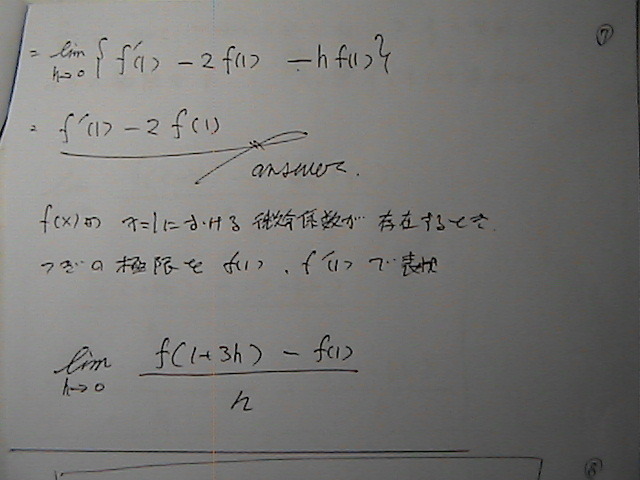 ⑦
= lim h→0 { f'(1) − 2f(1) − hf(1) }
= f'(1) − 2f(1)
answer.
f(x)の x=1における微分係数が 存在するとき
つぎの極限を f(1), f'(1)で表せ
lim h→0 f(1+3h) − f(1) / h
⑧